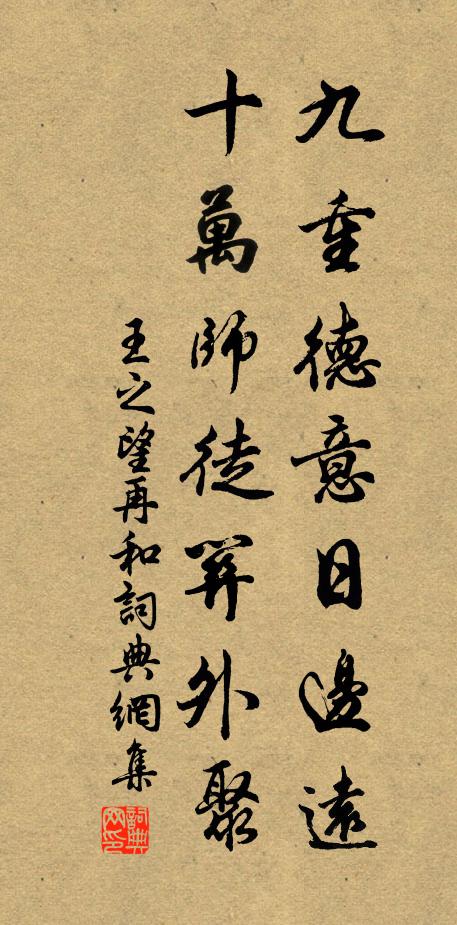 九重德意日邊遠
十萬師徒關外聚
王之望再和詞典網集
詞典网印